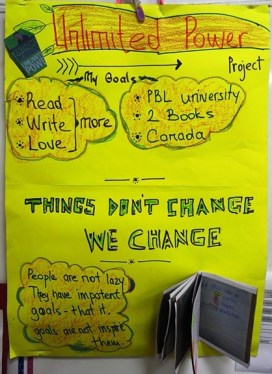 Unlimited Power
Project
My Goals
Read
Write
Love
more
PBL university
2 Books
Canada
THINGS DON'T CHANGE
WE CHANGE
People are not lazy
They have impotent
goals - that it.
goals are not inspire
them